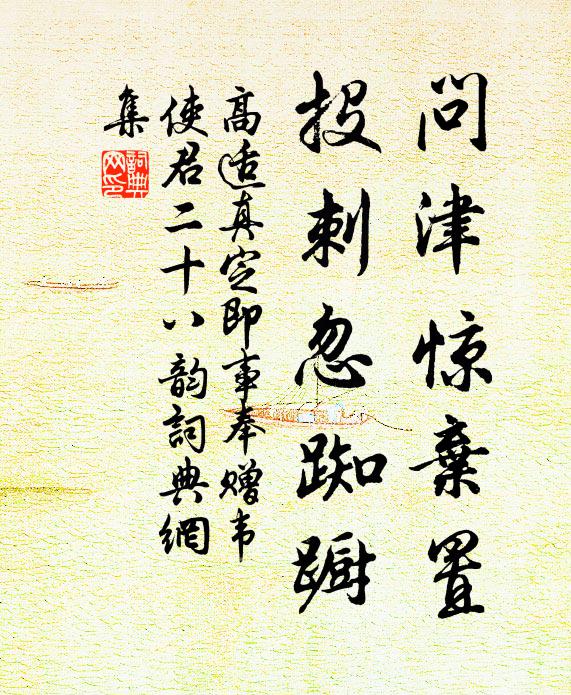 问津惊弃置
投刺忽踟蹰
高适真定即事奉赠韦
使君二十八韵詞典網
集
詞典网印